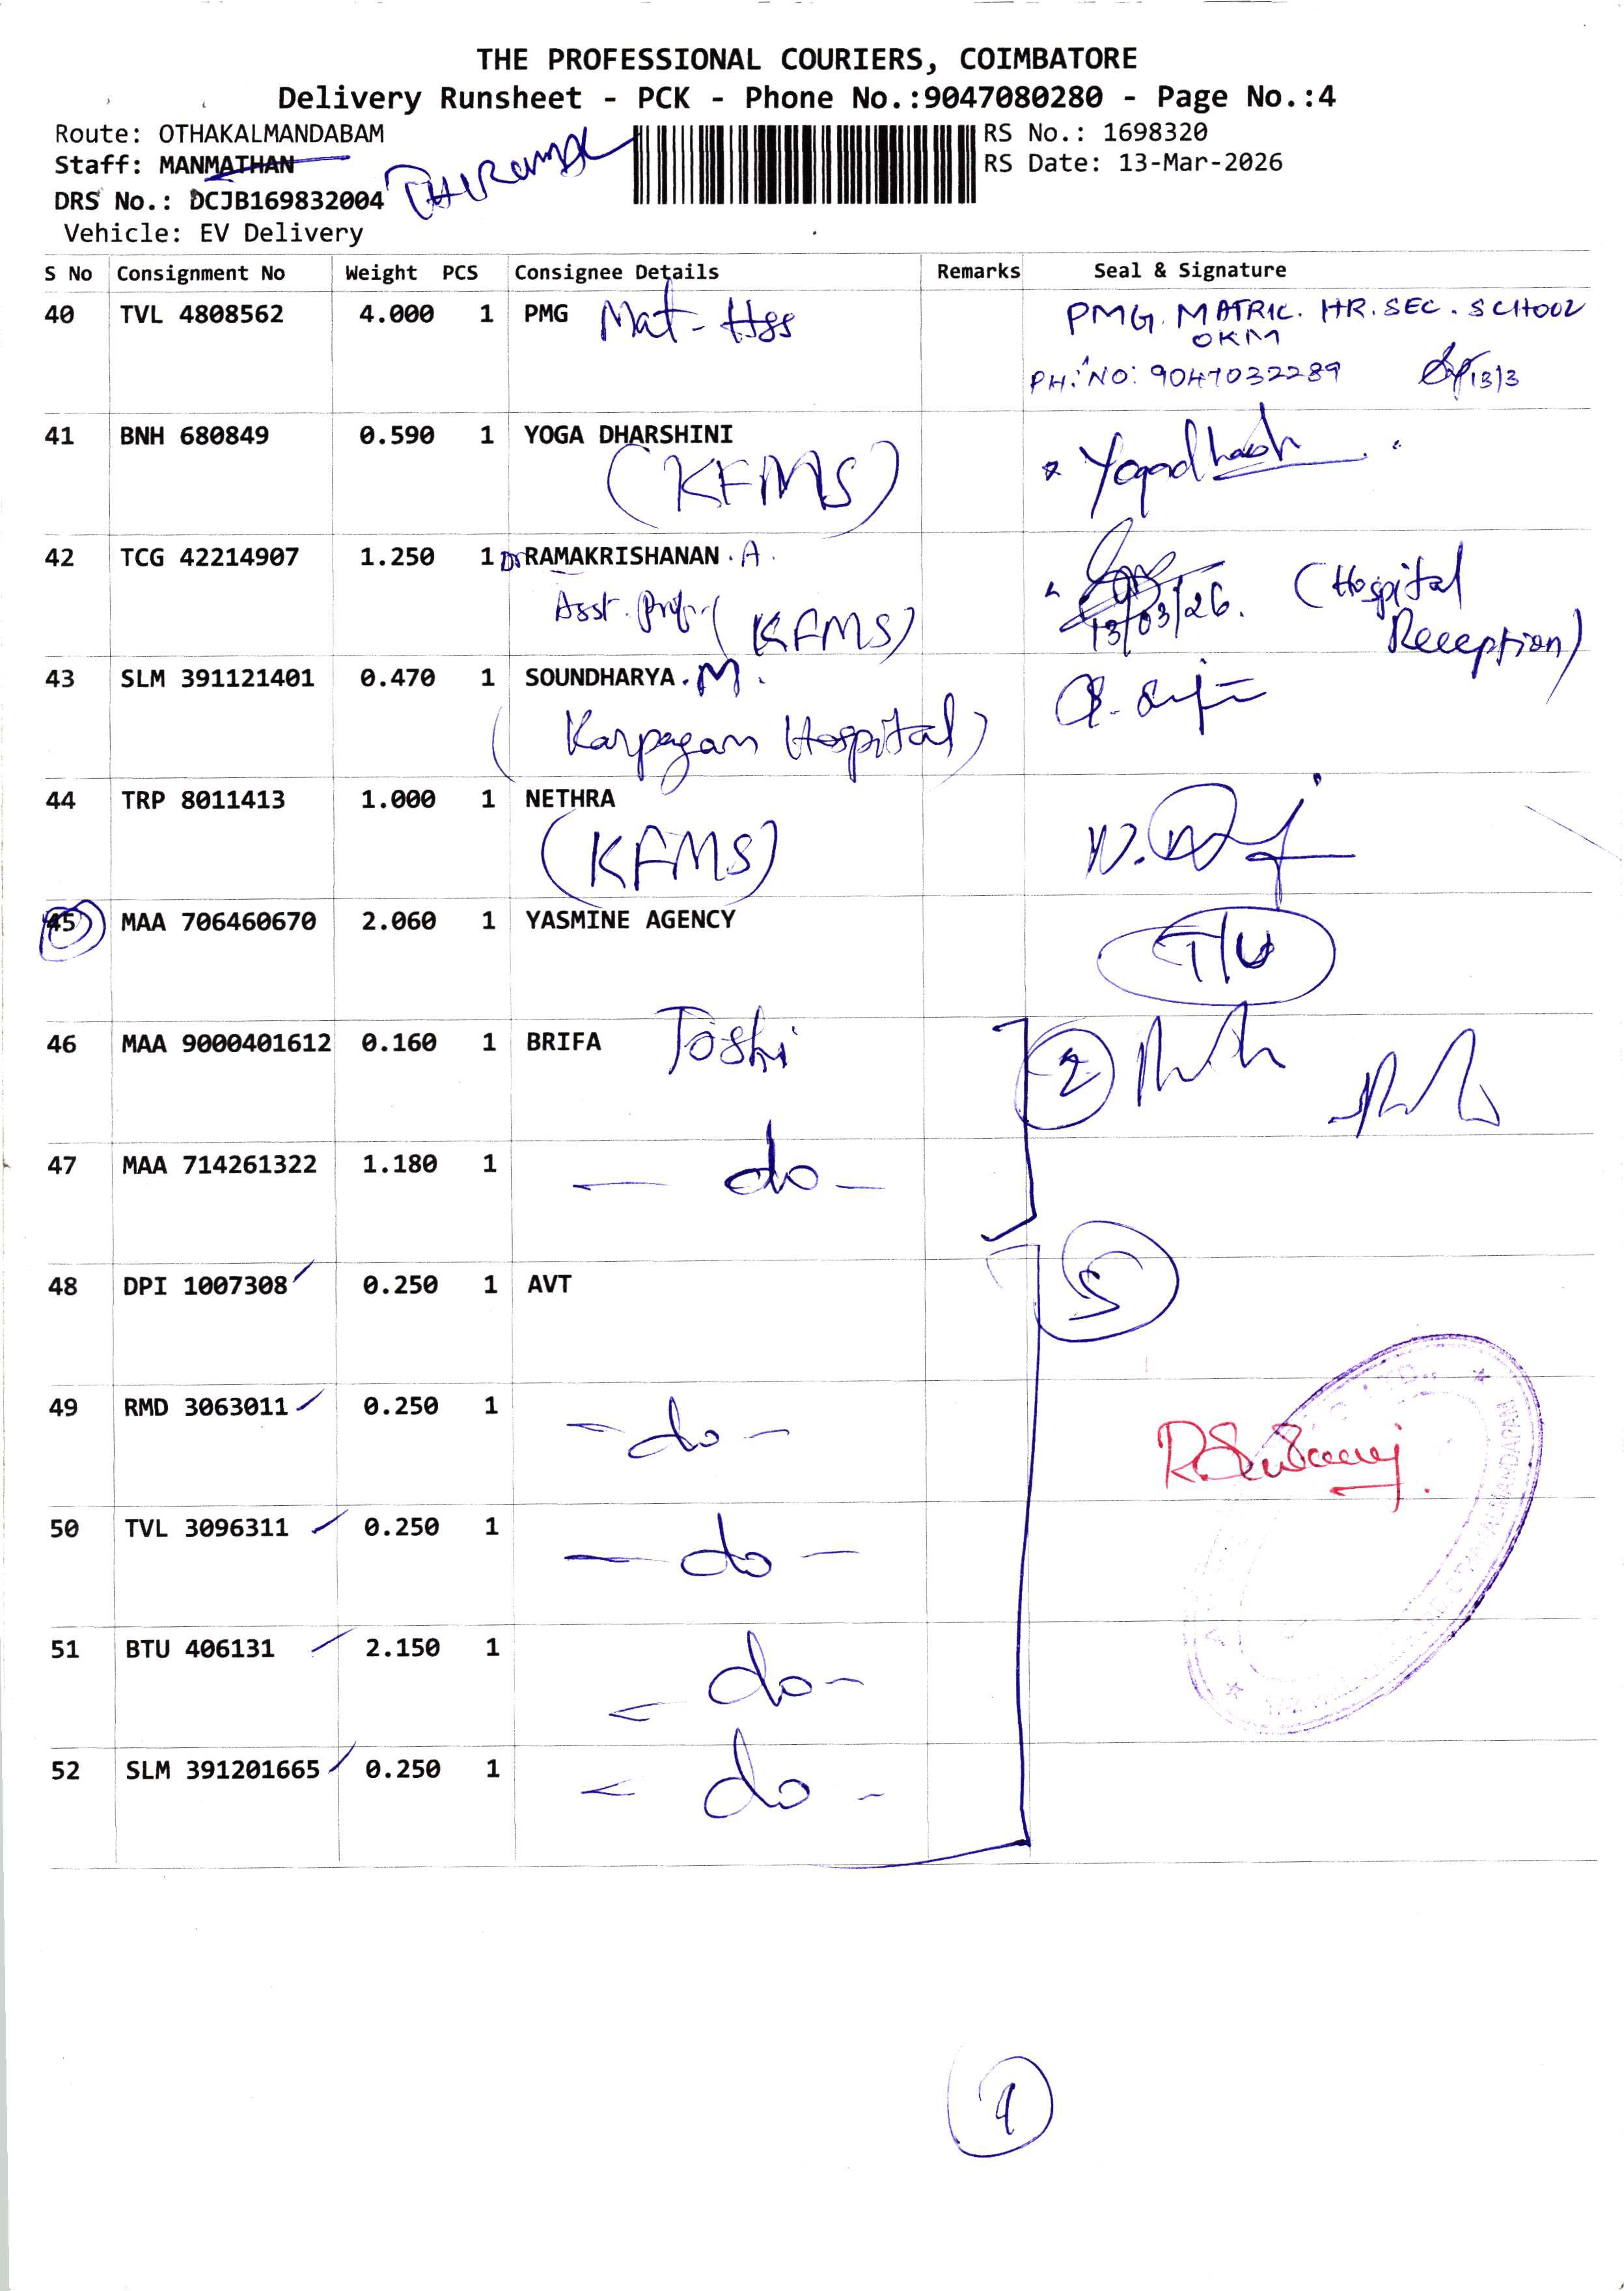 THE PROFESSIONAL COURIERS, COIMBATORE
Delivery Runsheet - PCK - Phone No.:9047080280 - Page No.:4
Route: OTHAKALMANDABAM
Staff: MANMATHAN
DRS No.: DCJB169832004
Vehicle: EV Delivery
RS No.: 1698320
RS Date: 13-Mar-2026
S No Consignment No Weight PCS Consignee Details Remarks Seal & Signature
40 TVL 4808562 4.000 1 PMG Mat-Hss PMG. MATRIC. HR. SEC. SCHOOL
OKM
PH: NO: 9047032289 13/3
41 BNH 680849 0.590 1 YOGA DHARSHINI Yogadharsh
(KFMS)
42 TCG 42214907 1.250 1 Dr RAMAKRISHANAN. A.
Asst. Prof. (KFMS) 13/03/26. (Hospital
Reception)
43 SLM 391121401 0.470 1 SOUNDHARYA. M.
(Karpagam Hospital)
44 TRP 8011413 1.000 1 NETHRA
(KFMS)
45 MAA 706460670 2.060 1 YASMINE AGENCY T/U
46 MAA 9000401612 0.160 1 BRIFA Toshi 2
47 MAA 714261322 1.180 1 - do -
48 DPI 1007308 0.250 1 AVT 5
49 RMD 3063011 0.250 1 - do -
50 TVL 3096311 0.250 1 - do -
51 BTU 406131 2.150 1 - do -
52 SLM 391201665 0.250 1 - do -